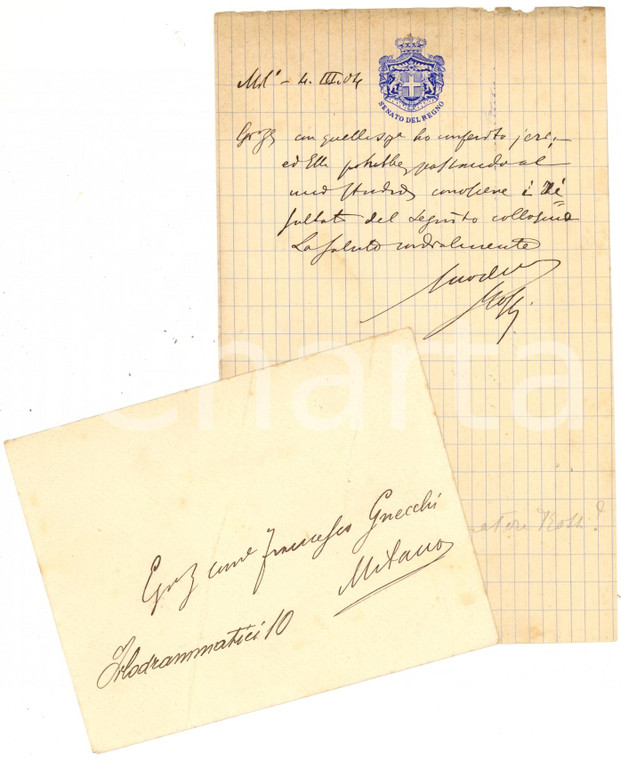 SENATO DEL REGNO
Mil° - 4. III. 04
ho conferito jeri,
ed Ella potrebbe, passando al
mio studio, conoscere i ri
sultati del seguito colloquio
La saluto cordialmente
Senatore Rossi?
Egreg Francesco Gnecchi
Milano
Filodrammatici 10
enarta